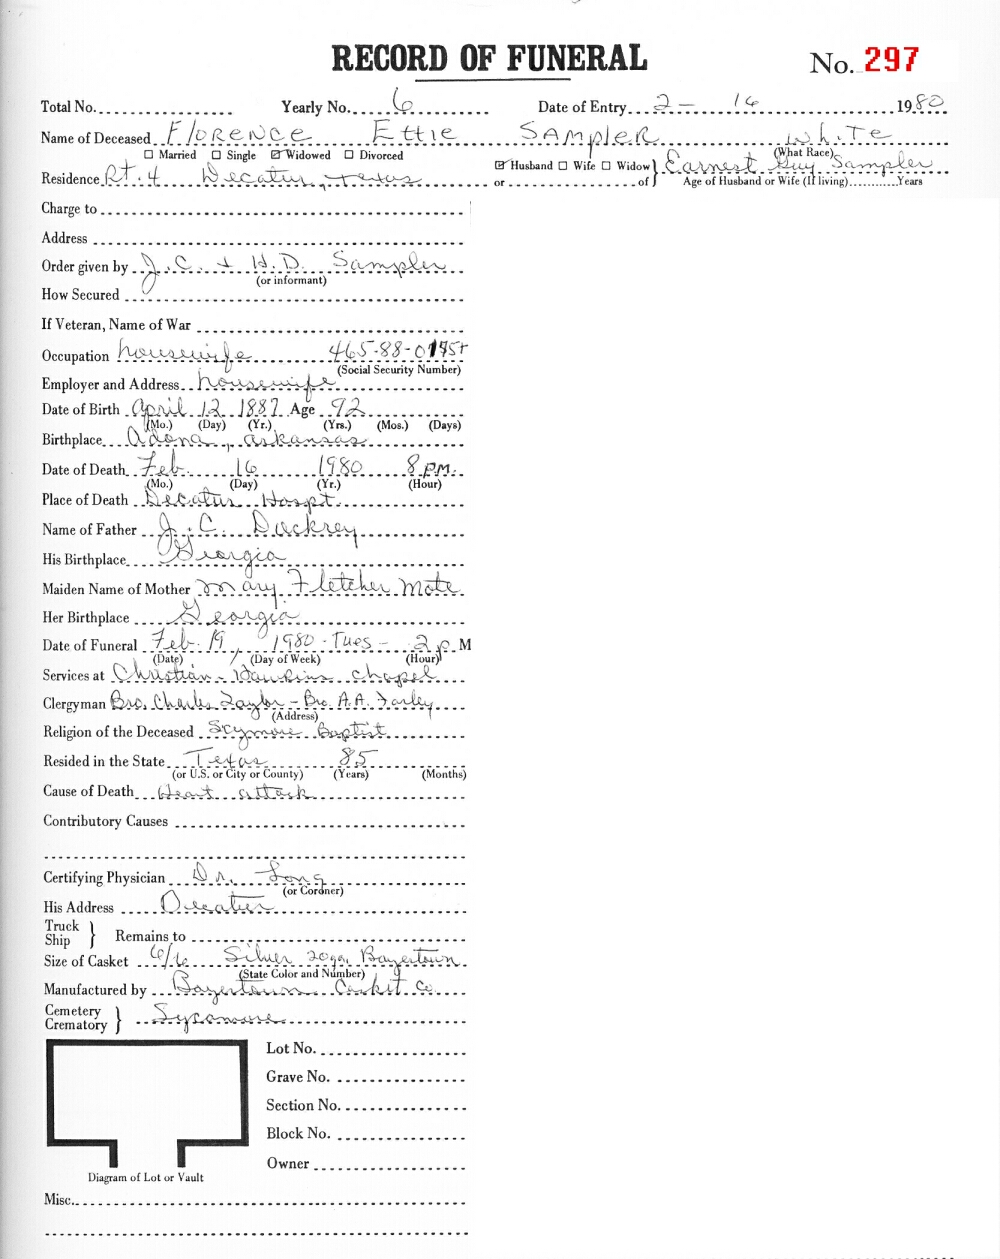 RECORD OF FUNERAL
No. 297
Total No. Yearly No. 6 Date of Entry 2 - 16 1980
Name of Deceased Florence Ettie Sampler White
(What Race)
☐ Married ☐ Single ☑ Widowed ☐ Divorced
☑ Husband ☐ Wife ☐ Widow } Earnest Guy Sampler
Residence Rt. 4 Decatur, Texas or of Age of Husband or Wife (If living) Years
Charge to
Address
Order given by J.C. + H.D. Sampler
(or informant)
How Secured
If Veteran, Name of War
Occupation housewife 465-88-
(Social Security Number)
Employer and Address housewife
Date of Birth April 12 1887 Age 92
(Mo.) (Day) (Yr.) (Yrs.) (Mos.) (Days)
Birthplace Adona, arkansas
Date of Death Feb. 16 1980 8 PM.
(Mo.) (Day) (Yr.) (Hour)
Place of Death Decatur Hospt.
Name of Father J.C. Dockrey
His Birthplace Georgia
Maiden Name of Mother Mary Fletcher Mote
Her Birthplace Georgia
Date of Funeral Feb. 19, 1980 - Tues - 2 p. M
(Date) (Day of Week) (Hour)
Services at Christian-Hawkins chapel
Clergyman Bro. Charles Taylor - Bro. A.A. Farley
(Address)
Religion of the Deceased Baptist
Resided in the State Texas 85
(or U.S. or City or County) (Years) (Months)
Cause of Death Heart attack
Contributory Causes
Certifying Physician Dr. Long
(or Cordner)
His Address Decatur
Truck
Ship } Remains to
Size of Casket 6/6 Silver 20ga. Boyertown
(State Color and Number)
Manufactured by Boyertown Casket Co.
Cemetery
Crematory } Sycamore
Lot No.
Grave No.
Section No.
Block No.
Owner
Diagram of Lot or Vault
Misc.